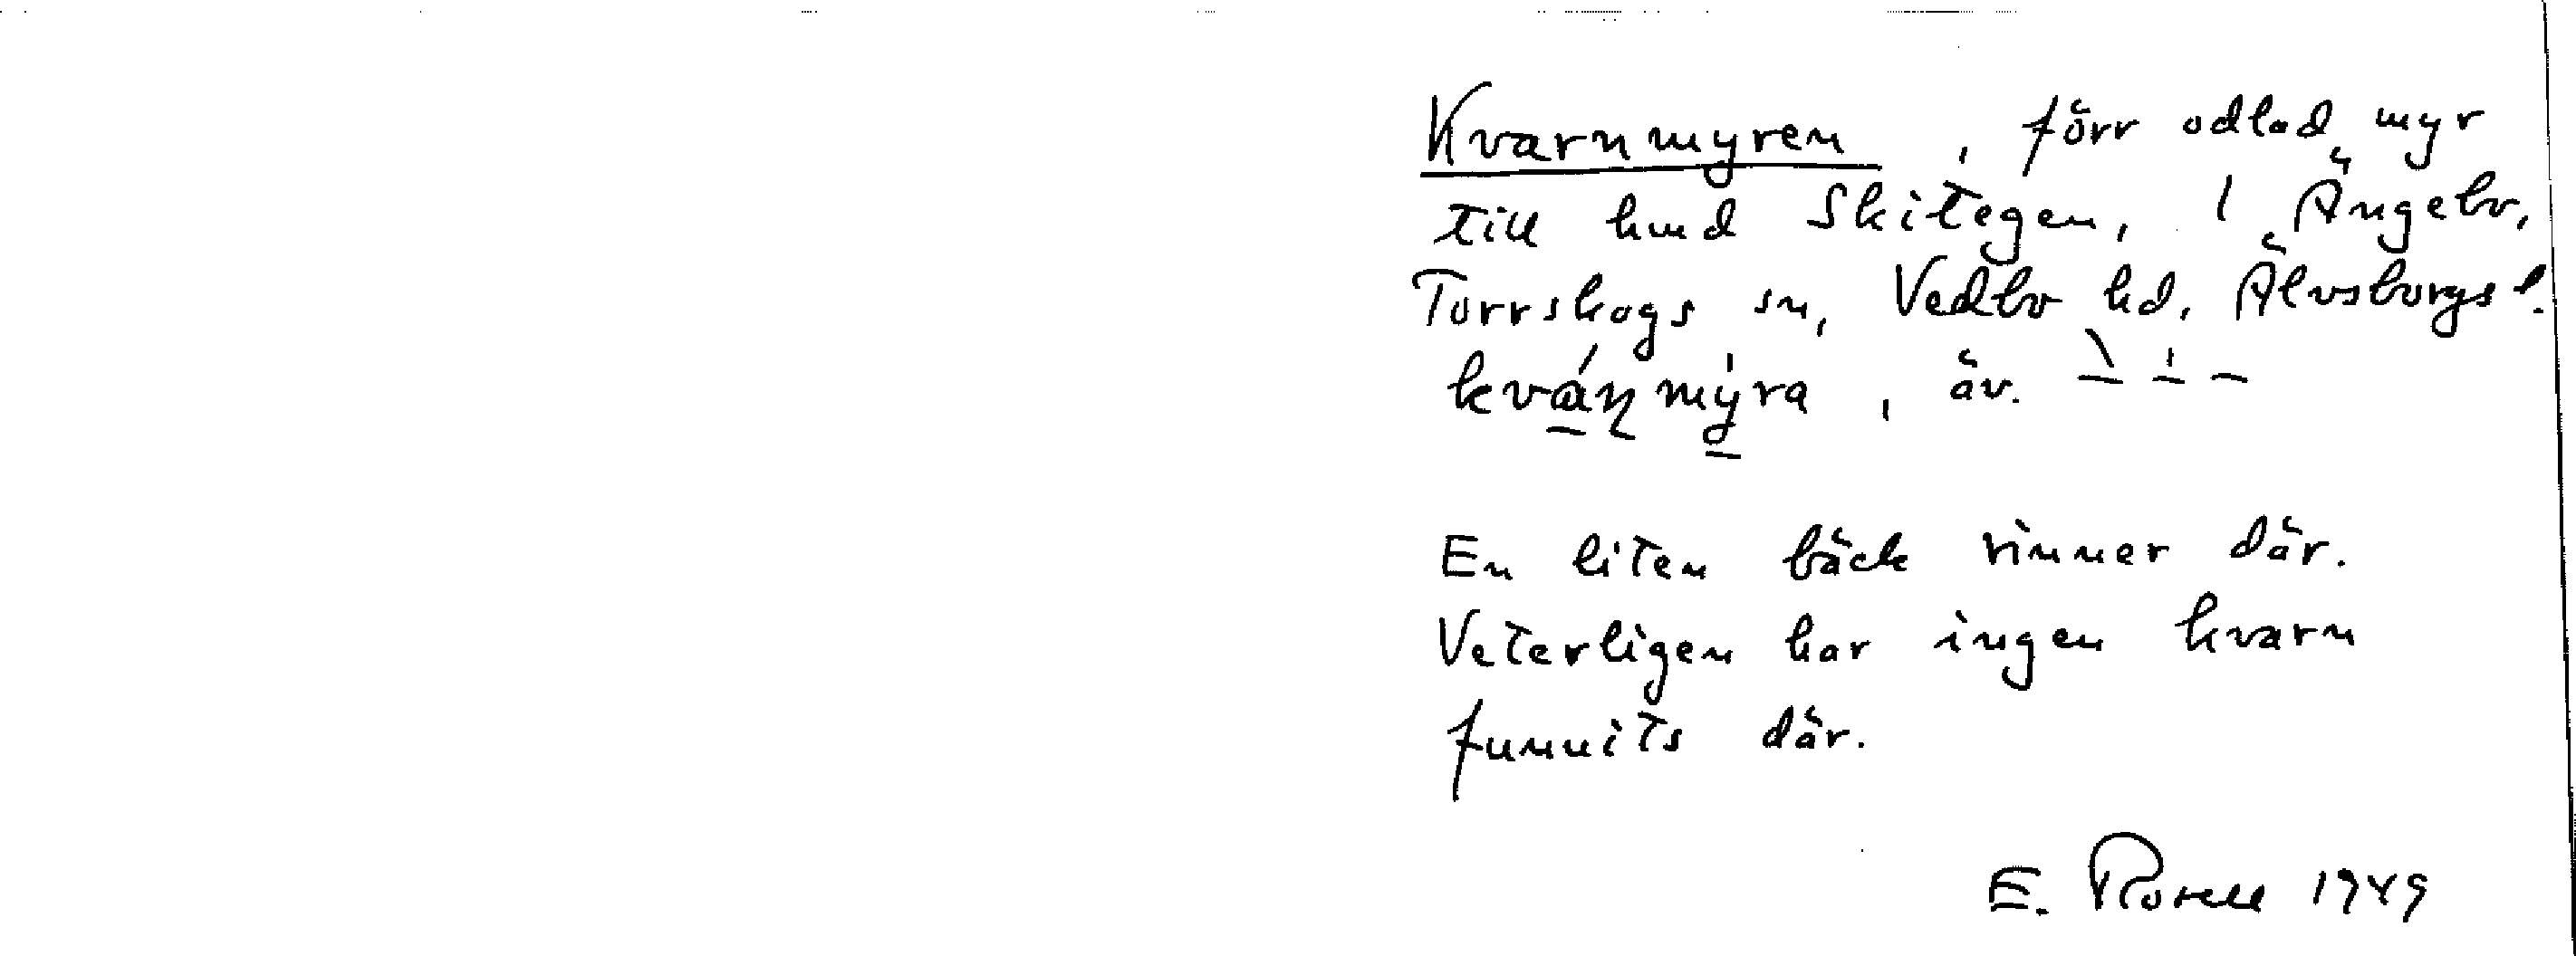 Kvarnmyren, förr odlad myr
till hmd Skitegen, 1 Ängebo,
Torrskogs sn, Vedbo hd, Älvsborgs l.
kváɳmy̱̍ra, äv. – – –
En liten bäck rinner där.
Veterligen har ingen kvarn
funnits där.
E. Rorell 1949